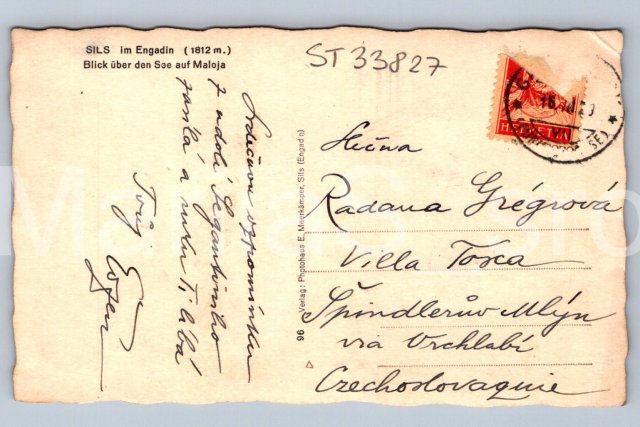 SILS im Engadin (1812 m.)
Blick über den See auf Maloja
ST 33827
Srdečnou vzpomínku
z údolí Segantiniho
zasílá a ruku Ti líbá
Tvůj
96 Verlag: Photohaus E. Meerkämper, Sils (Engadin)
HELVETIA
Slečna
Radana Grégrová
Villa Tosca
Špindlerův Mlýn
via Vrchlabí
Czechoslovaquie